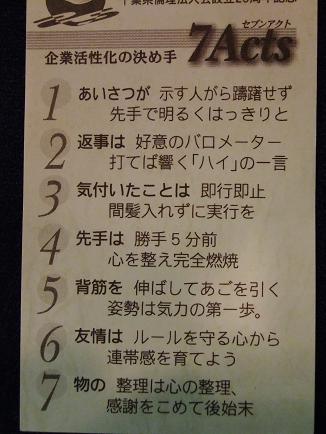 千葉県倫理法人会設立20周年記念
セブンアクト
企業活性化の決め手 7Acts
1 あいさつが 示す人がら躊躇せず
先手で明るくはっきりと
2 返事は 好意のバロメーター
打てば響く「ハイ」の一言
3 気付いたことは 即行即止
間髪入れずに実行を
4 先手は 勝手5分前
心を整え完全燃焼
5 背筋を 伸ばしてあごを引く
姿勢は気力の第一歩。
6 友情は ルールを守る心から
連帯感を育てよう
7 物の 整理は心の整理、
感謝をこめて後始末